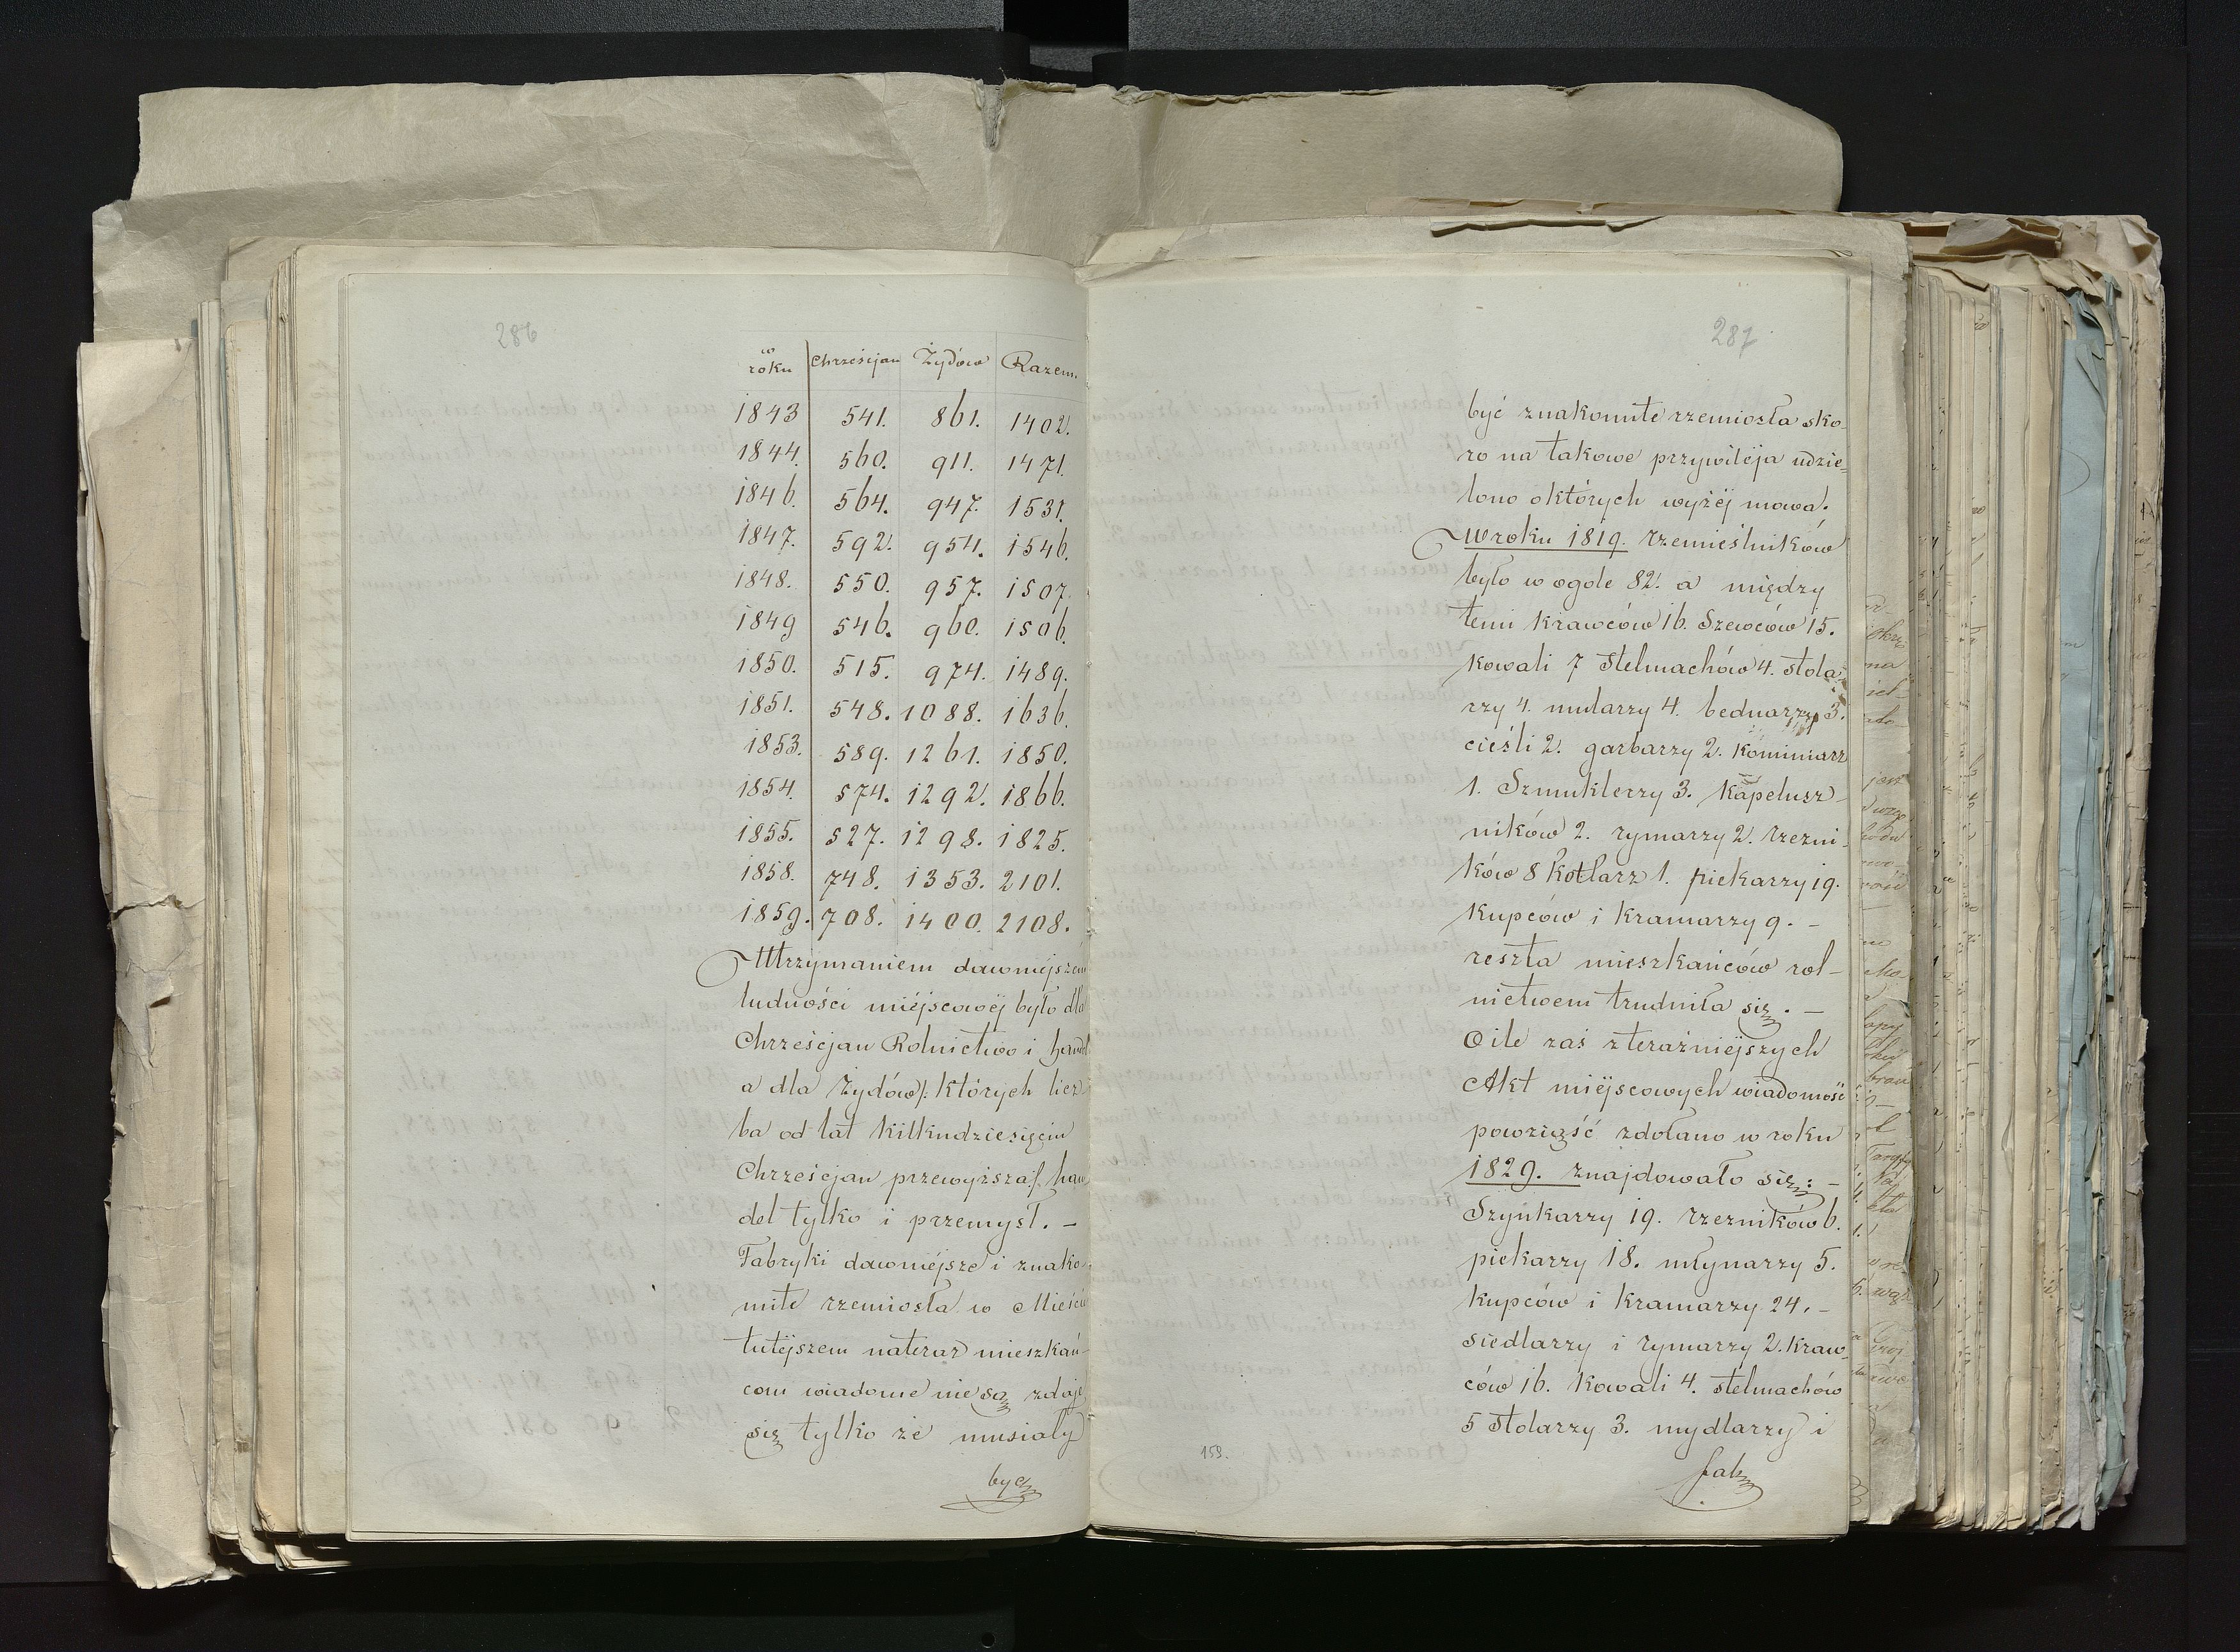 286
w roku Chrześcjan Żydów Razem.
1843 541. 861. 1402.
1844. 560. 911. 1471.
1846. 564. 947. 1531.
1847. 592. 954. 1546.
1848. 550. 957. 1507.
1849 546. 960. 1506.
1850. 515. 974. 1489.
1851. 548. 1088. 1636.
1853. 589. 1261. 1850.
1854. 574. 1292. 1866.
1855. 527. 1298. 1825.
1858. 748. 1353. 2101.
1859. 708. 1400. 2108.
Utrzymaniem dawniéjszem
ludności miéjscowéj było dla
Chrześcjan Rolnictwo i handel
a dla Żydów /: których licz
ba od lat kilkudziesięciu
Chrześcjan przewyższa :/ han
del tylko i przemysł. –
Fabryki dawniéjsze i znako-
mite rzemiosła w Mieście
tutéjszem nateraz mieszkań-
com wiadome nie są zdaje
się tylko że musiały
być
287
być znakomite rzemiosła sko-
ro na takowe przywiléja udzie-
lono o których wyżéj mowa.
W roku 1819. rzemieślników
było w ogóle 82. a między
temi Krawców 16. Szewców 15.
Kowali 7 Stelmachów 4. stola
rzy 4. mularzy 4. bednarzy 3.
cieśli 2. garbarzy 2. Kominiarz
1. Szmuklerzy 3. Kapelusz-
ników 2. rymarzy 2. rzezni-
ków 8 Kotlarz 1. piekarzy 19.
Kupców i Kramarzy 9. –
reszta mieszkańców rol-
nictwem trudniła się. –
O ile zaś z teraźniejszych
Akt miéjscowych wiadomość
powziąść zdołano w roku
1829. znajdowało się: –
Szynkarzy 19. rzezników 6.
piekarzy 18. młynarzy 5.
Kupców i Kramarzy 24. –
siedlarzy i rymarzy 2. Kraw-
ców 16. Kowali 4. stelmachów
5 Stolarzy 3. mydlarzy i
fab
153.